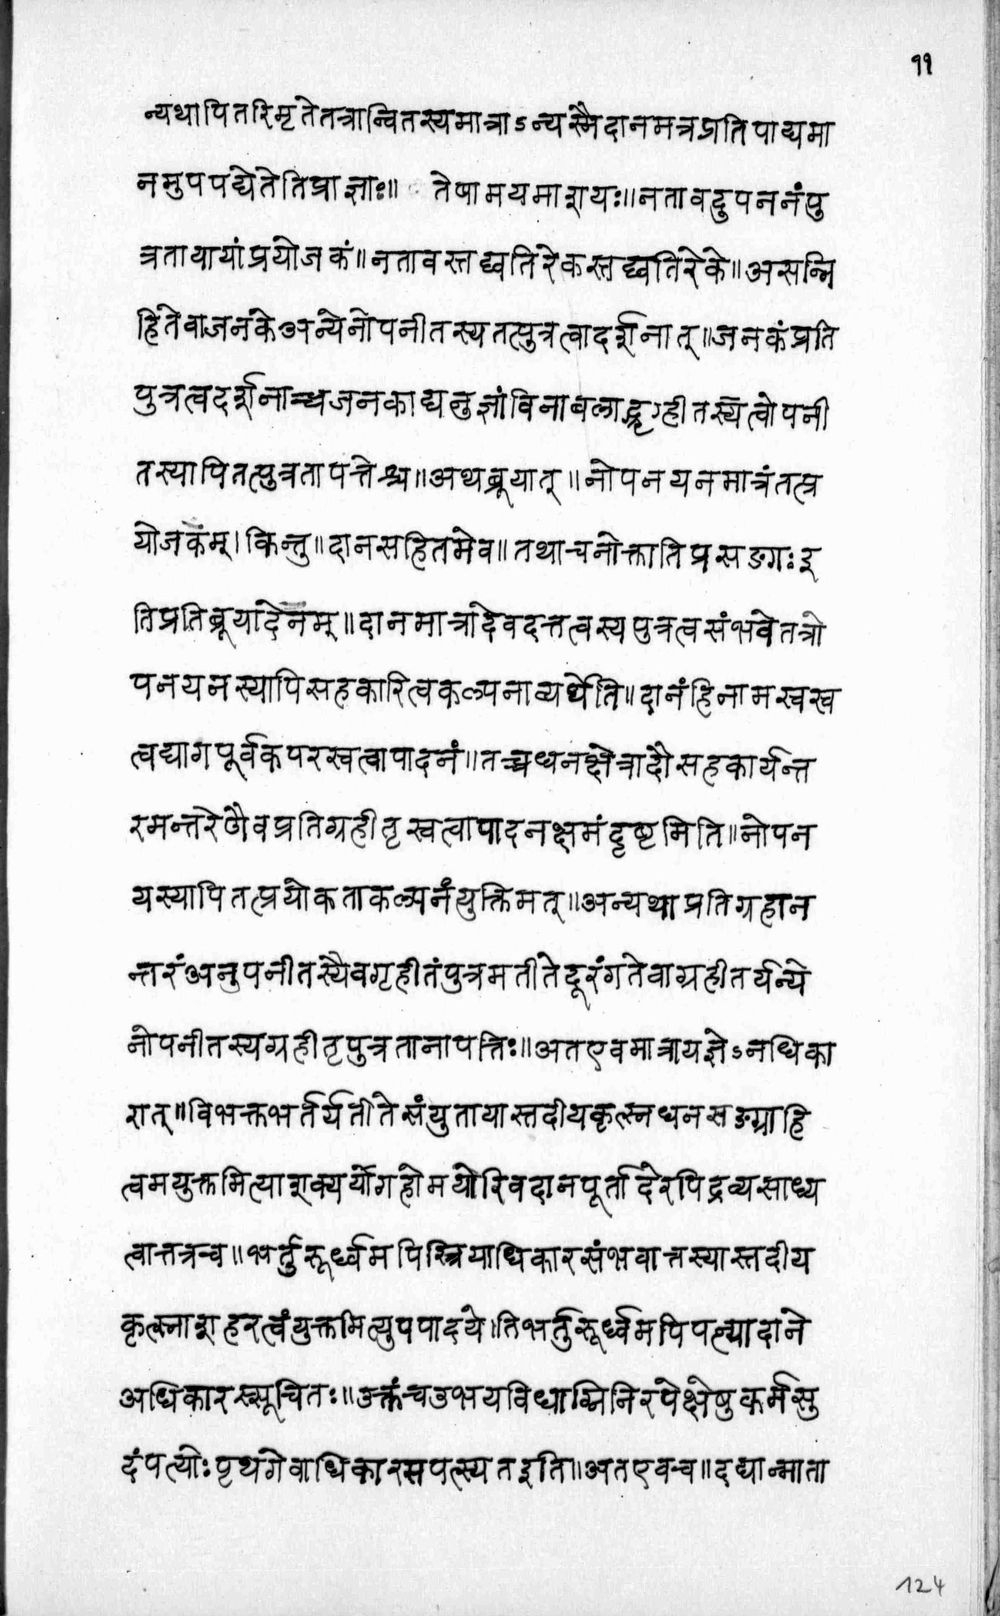 ११
न्यथापितरिमृतेतत्रान्वितस्यमात्राऽन्यस्मैदानमत्रप्रतिपाद्यमा
नमुपपद्येतेतिप्राज्ञाः॥ तेषामयमाशयः॥नतावदुपननंपु
त्रतायायांप्रयोजकं॥नतावस्तद्व्यतिरेकस्तद्व्यतिरेके॥असन्नि
हितेवाजनकेअन्येनोपनीतस्यतत्पुत्रत्वादर्शनात्॥जनकंप्रति
पुत्रत्वदर्शनाच्चजनकाद्यनुज्ञांविनाबलाद्गृहीतस्यैत्वोपनी
तस्यापितत्पुत्रतापत्तेश्च॥अथब्रूयात्॥नोपनयनमात्रंतत्प्र
योजकंम्।किन्तु॥दानसहितमेव॥तथाचनोक्तातिप्रसङगःइ
तिप्रतिब्रूयादेनम्॥दानमात्रादेवदत्तत्वस्यपुत्रत्वसंभवेतत्रो
पनयनस्यापिसहकारित्वकल्पनाव्यर्थेति॥दानंहिनामस्वस्व
त्वद्यागपूर्वकपरस्वत्वापादनं॥तच्चधनक्षेत्रादौसहकार्यन्त
रमन्तरेणैवप्रतिग्रहीतृस्वत्वापादनक्षमंदृष्टमिति॥नोपन
यस्यापितत्प्रयोकताकल्पनंयुक्तिमत्॥अन्यथाप्रतिग्रहान
न्तरंअनुपनीतस्यैवगृहीतंपुत्रमतीतेदूरंगतेवाग्रहीतर्यन्ये
नोपनीतस्यग्रहीतृपुत्रतानापत्तिः॥अतएवमात्रायज्ञेऽनधिका
रात्॥विभक्तभर्तर्यतीतेसंयुतायास्तदीयकृत्स्नधनसङग्राहि
त्वमयुक्तमित्याशक्यर्योगहोमयोरिवदानपूर्तादेरपिद्रव्यसाध्य
त्वात्तत्रच॥भर्तुरूर्ध्वमपिस्त्रियाधिकारसंभवात्तस्यास्तदीय
कृत्स्नाशहरत्वंयुक्तमित्युपपादये।तिभर्तुरूर्ध्वमपिपत्न्यादाने
अधिकारस्सूचितः॥उक्तंचउभयविधाग्निनिरपेक्षेषुकर्मसु
दंपत्योःपृथगेवाधिकारसपत्स्यतइति॥अतएवच॥दद्यान्माता
124